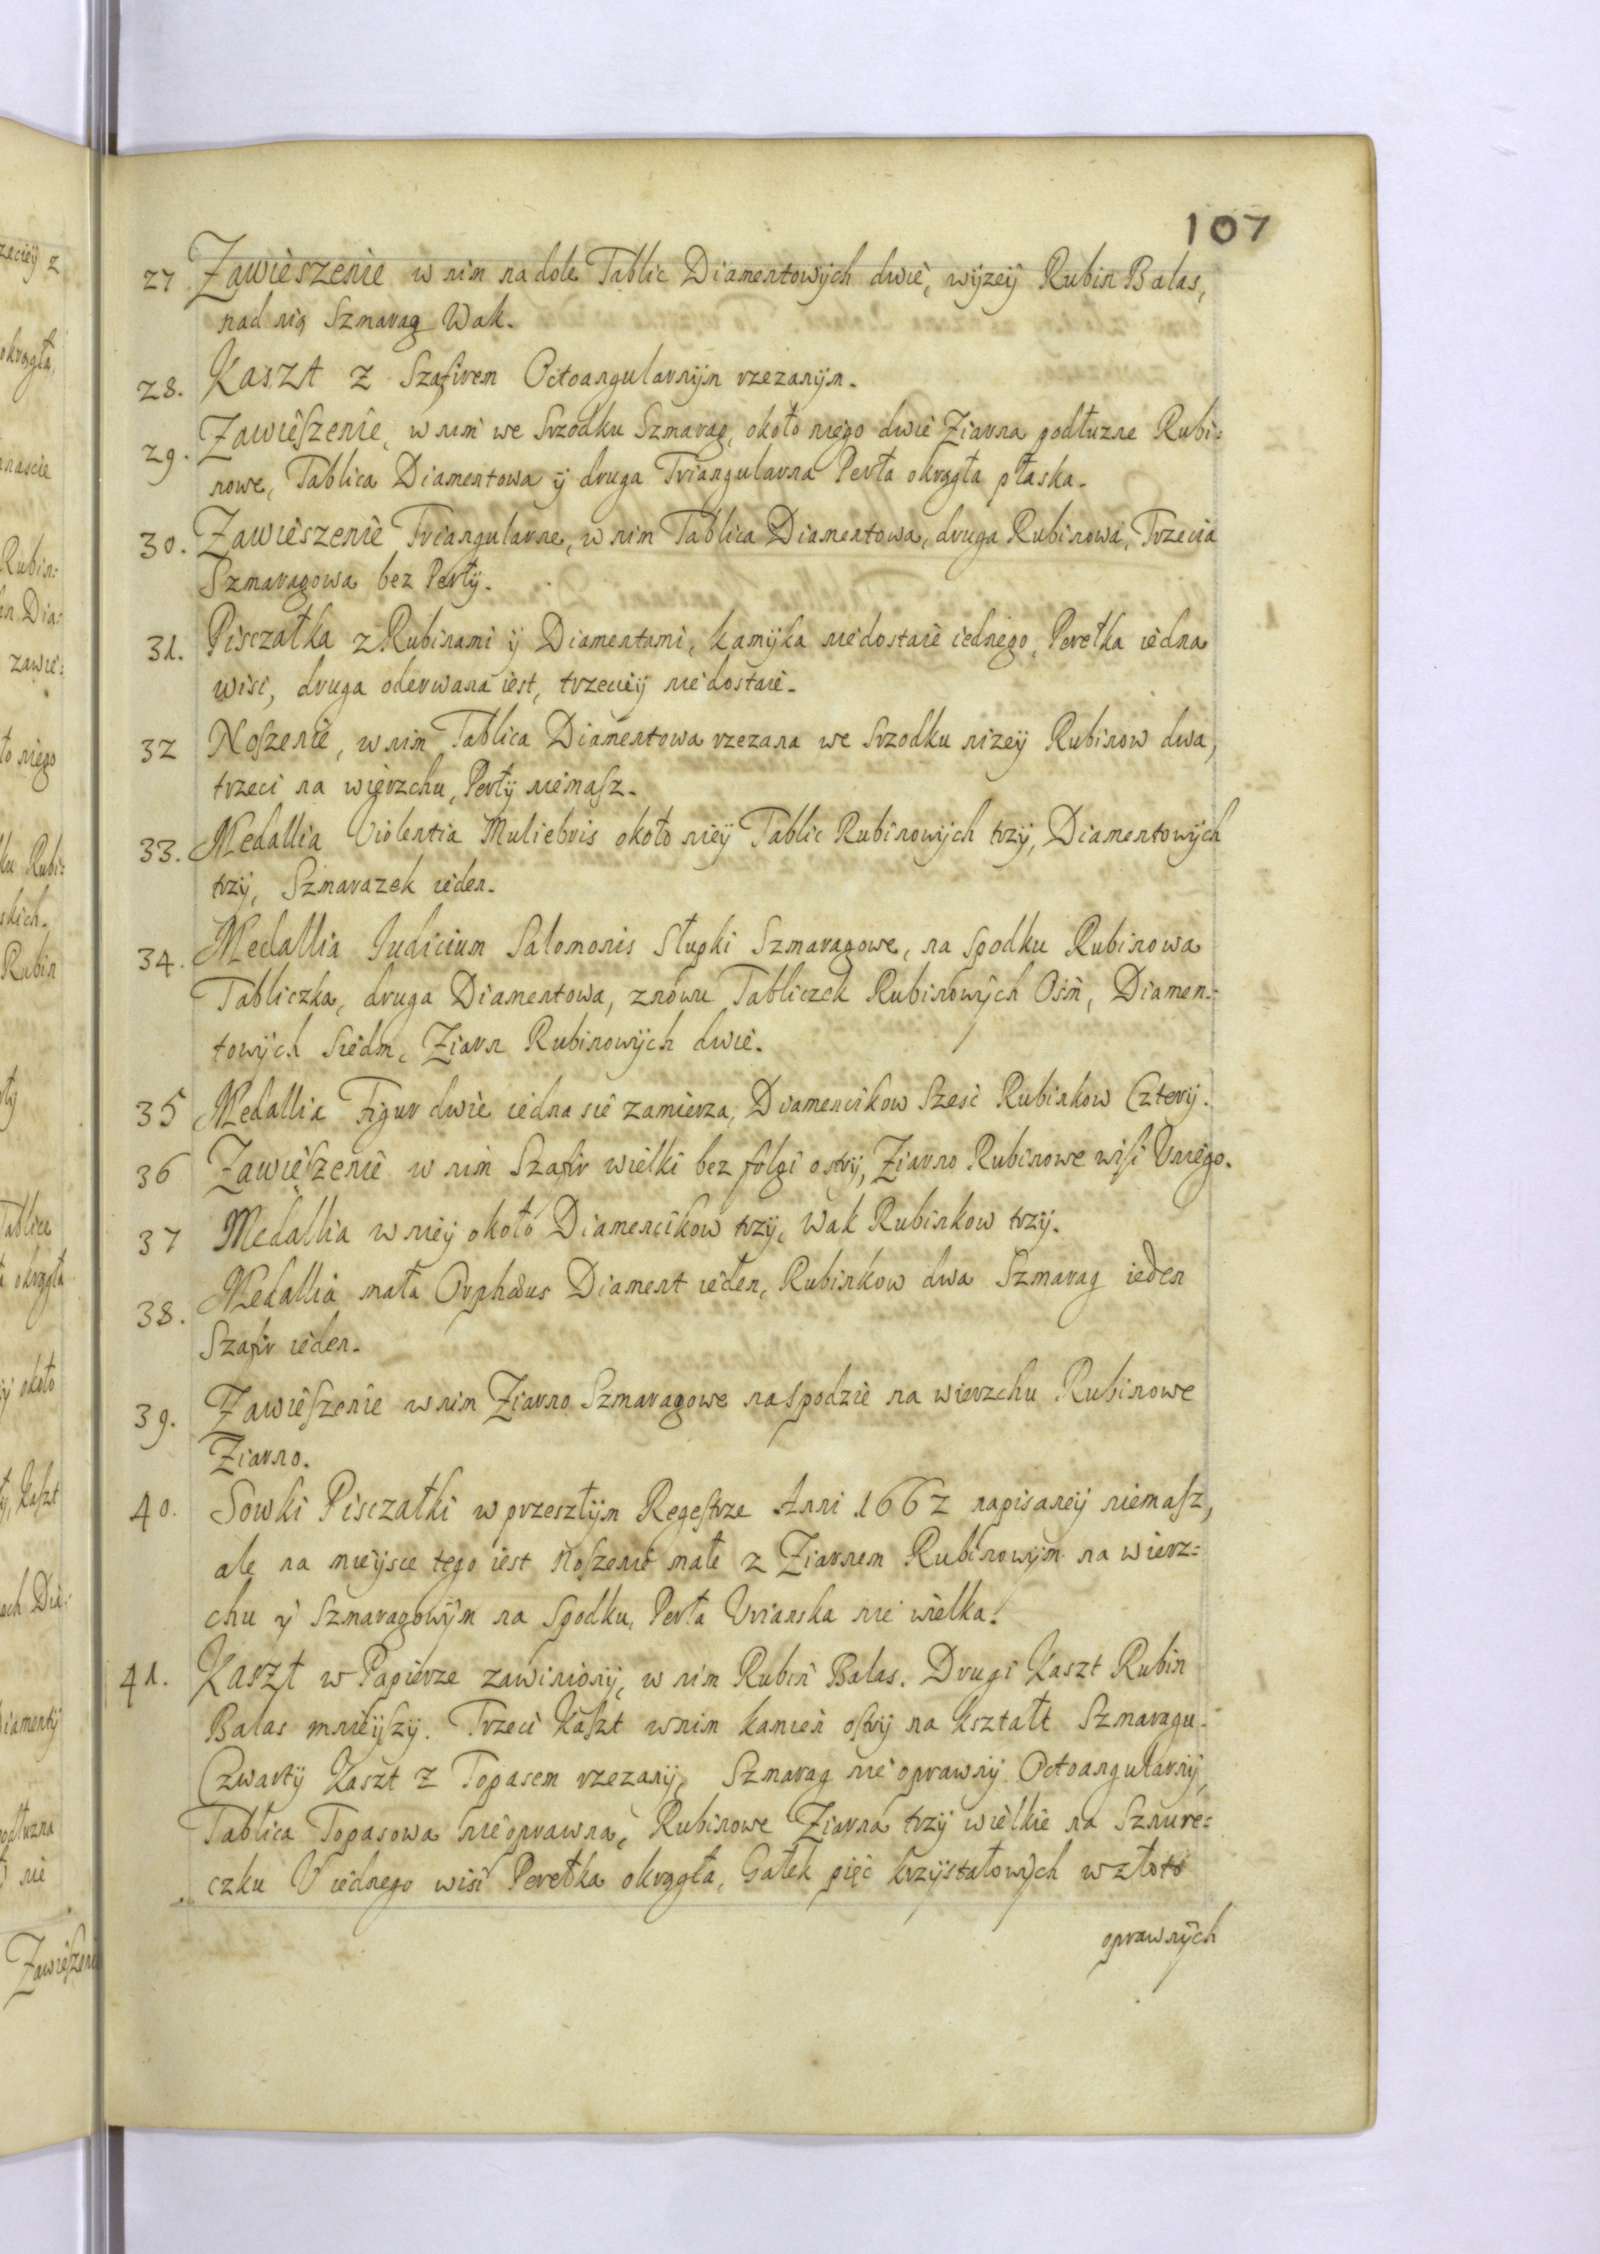 107
27 Zawieszenie w nim na dole Tablic Diamentowych dwie, wyzey Rubin Balas,
nad nią Szmarag Wak.
28. Kaszt z Szafirem Octoangularnym rzezanym.
29. Zawieszenie, w nim we Srzodku Szmarag, około niego dwie Ziarna podłuzne Rubi:
nowe, Tablica Diamentowa y druga Triangularna Perła okrągła płaska.
30. Zawieszenie Triangularne, w nim Tablica Diamentowa, druga Rubinowa, Trzecia
Szmaragowa bez Perły.
31. Pisczałka z Rubinami y Diamentami, kamyka niedostaie iednego, Perełka iedna
wisi, druga oderwana iest, trzeciey niedostaie.
32 Noszenie, w nim Tablica Diamentowa rzezana we Srzodku nizey Rubinow dwa,
trzeci na wierzchu, Perły niemasz.
33. Medallia Violentia Muliebris około niey Tablic Rubinowych trzy, Diamentowych
trzy, Szmarazek ieden.
34. Medallia Iudicium Salomonis Słupki Szmaragowe, na Spodku Rubinowa
Tabliczka, druga Diamentowa, znowu Tabliczek Rubinowych Ośm, Diamen:
towych Siedm, Ziarn Rubinowych dwie.
35 Medallia Figur dwie iedna sie zamierza, Diamencikow Szesc Rubinkow Cztery.
36 Zawieszenie w nim Szafir wielki bez folgi ostry, Ziarno Rubinowe wisi Uniego.
37 Medallia w niey około Diamencikow trzy, Wak Rubinkow trzy.
38. Medallia mała Orphæus Diament ieden, Rubinkow dwa Szmarag ieden
Szafir ieden.
39. Zawieszenie w nim Ziarno Szmaragowe naspodzie na wierzchu Rubinowe
Ziarno.
40. Sowki Pisczałki w przeszłym Regestrze Anni 1662 napisaney niemasz,
ale na mieysce tego iest Noszenie małe z Ziarnem Rubinowym na wierz:
chu y Szmaragowym na Spodku, Perła Urianska nie wielka.
41. Kaszt w Papierze zawiniony, w nim Rubin Balas. Drugi Kaszt Rubin
Balas mnieyszy. Trzeci Kaszt wnim kamien ostry na kształt Szmaragu.
Czwarty Kaszt z Topasem rzezany, Szmarag nie oprawny Octoangularny,
Tablica Topasowa nieoprawna, Rubinowe Ziarna trzy wielkie na Sznure:
czku U iednego wisi Perełka okrągła, Gałek pięć krzyształowych wzłoto
oprawnych